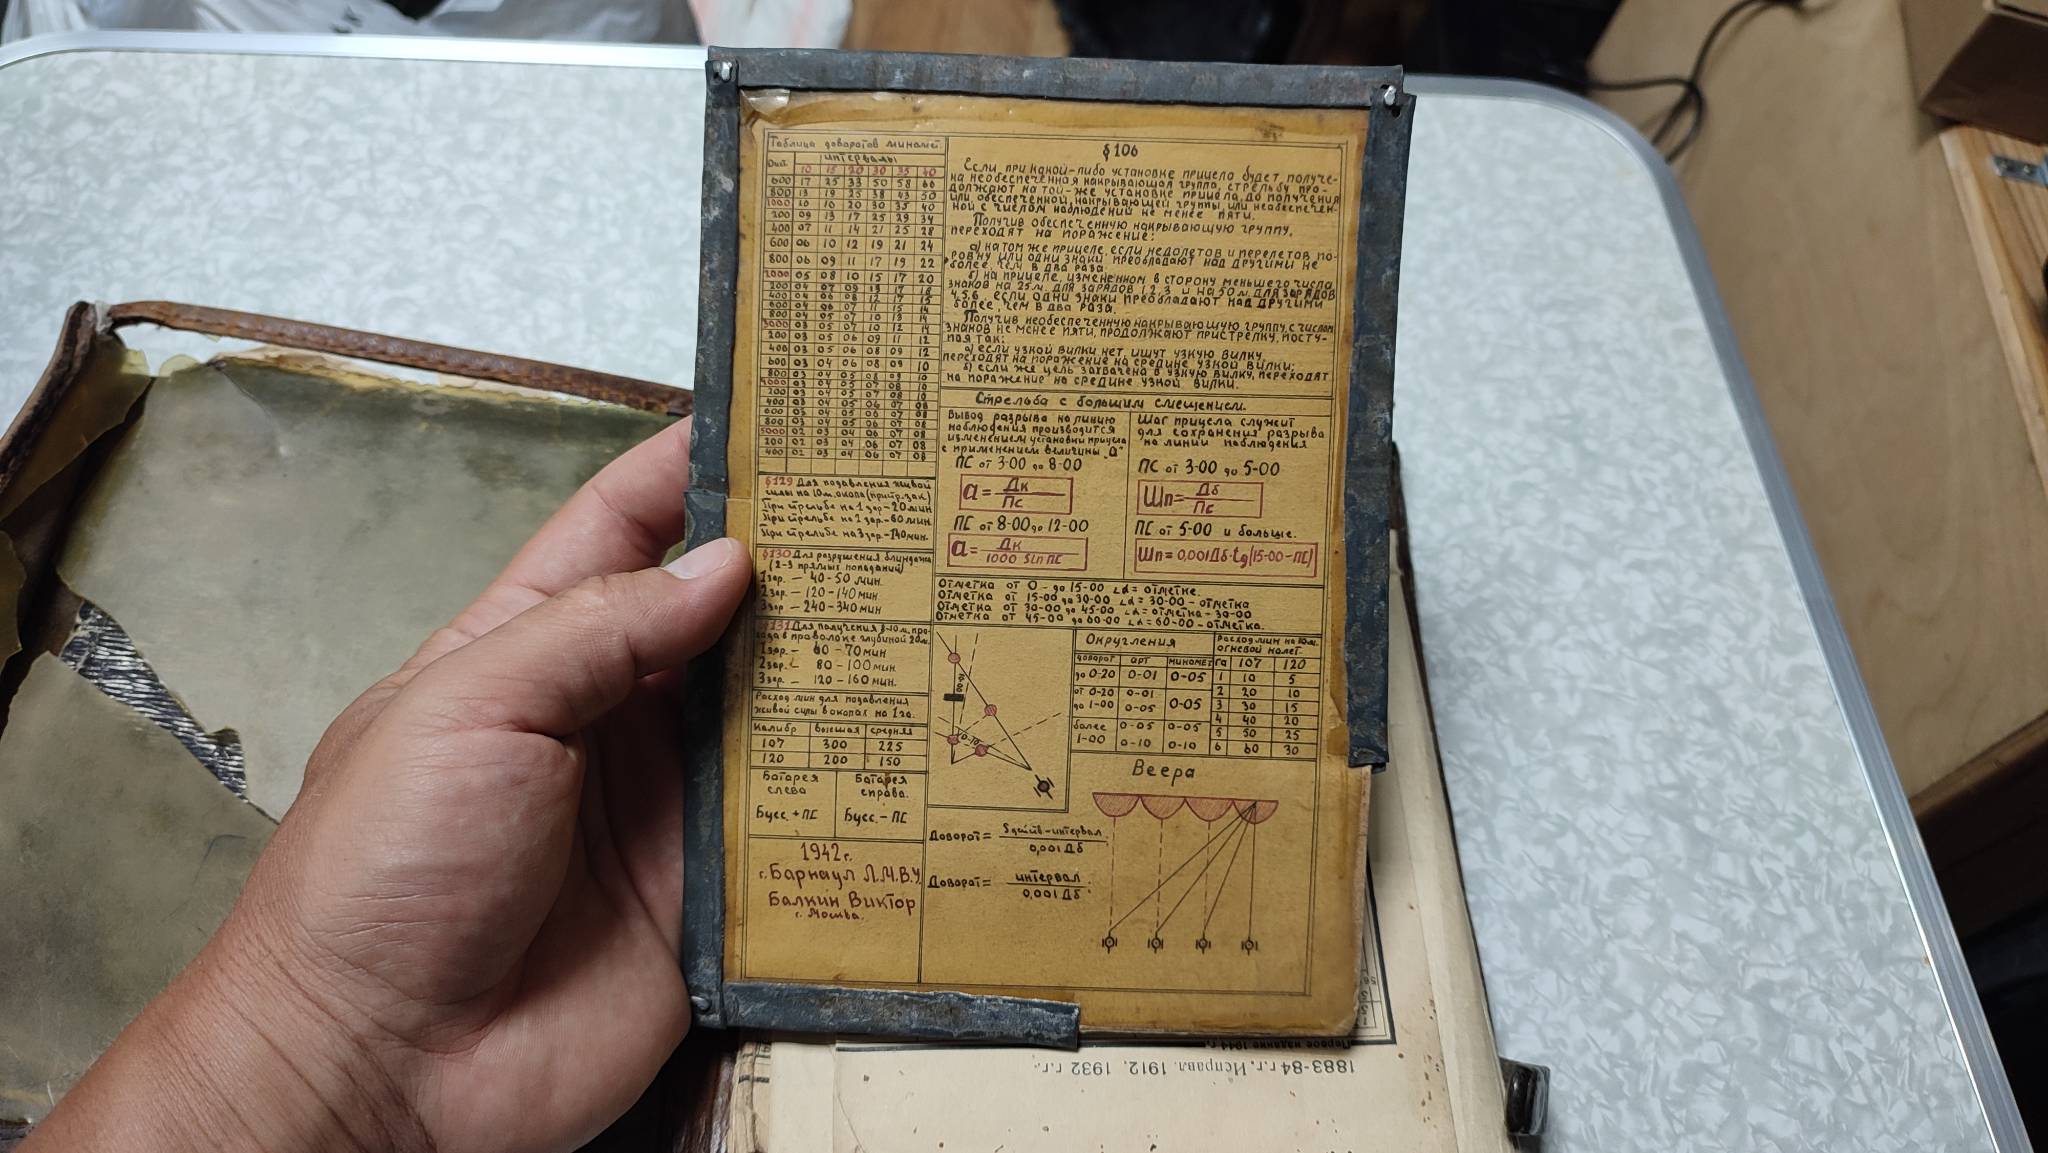 Таблица доворотов миномет.
Дист. интервалы
10 15 20 30 35 40
600 17 25 33 50 58 66
800 13 19 25 38 43 50
1000 10 16 20 30 35 40
200 09 13 17 25 29 34
400 07 11 14 21 25 28
600 06 10 12 19 21 24
800 06 09 11 17 19 22
2000 05 08 10 15 17 20
200 04 07 09 13 17 18
400 04 06 08 12 17 15
600 04 06 07 11 15 14
800 04 05 07 10 13 14
3000 03 05 07 10 12 14
200 03 05 06 09 11 12
400 03 05 06 08 09 12
600 03 04 06 08 09 10
800 03 04 05 08 09 10
4000 03 04 05 07 08 10
200 03 04 05 07 08 10
400 03 04 05 06 07 08
600 03 04 05 06 07 08
800 03 04 05 06 07 08
5000 02 03 04 06 07 08
200 02 03 04 06 07 08
400 02 03 04 06 07 08
§129 Для подавления живой
силы на 10м. окопа (пристр. зак.)
При стрельбе на 1 зар-20 мин
При стрельбе на 2 зар.-60 мин.
При стрельбе на 3 зар-140 мин.
§130 Для разрушения блиндажа
(2-3 прямых попаданий)
1 зар. — 40-50 мин.
2 зар. — 120-140 мин
3 зар. — 240-340 мин
§131 Для получения 8-10 м. про-
хода в проволоке глубиной 20м.
1 зар. — 60-70 мин
2 зар. — 80-100 мин.
3 зар. — 120-160 мин.
Расход мин для подавления
живой силы в окопах на 1 га.
Калибр высшая средняя
107 300 225
120 200 150
Батарея слева
Бусс. + ПС
Батарея справа.
Бусс. - ПС
1942 г.
г. Барнаул Л.М.В.У.
Балкин Виктор
г. Москва.
§106
Если при какой-либо установке прицела будет получе-
на необеспеченная накрывающая группа, стрельбу про-
должают на той-же установке прицела, до получения
или обеспеченной, накрывающей группы, или необеспечен-
ной с числом наблюдений не менее пяти.
Получив обеспеченную накрывающую группу,
переходят на поражение:
а) на том же прицеле, если недолетов и перелетов по-
ровну или одни знаки преобладают над другими не
более, чем в два раза
б) на прицеле, измененном в сторону меньшего числа
знаков на 25 м. для зарядов 1, 2, 3 и на 50 м. для зарядов
4,5,6, если одни знаки преобладают над другими
более, чем в два раза.
Получив необеспеченную накрывающую группу, с числом
знаков не менее пяти, продолжают пристрелку, посту-
пая так:
а) если узкой вилки нет, ищут узкую вилку
переходят на поражение на средине узкой вилки;
б) если же цель захвачена в узкую вилку, переходят
на поражение на средине узкой вилки.
Стрельба с большим смещением.
Вывод разрыва на линию
наблюдения производится
изменением установки прицела
с применением величины "а"
ПС от 3-00 до 8-00
а = Дк / Пс
ПС от 8-00 до 12-00
а = Дк / 1000 Sin ПС
Шаг прицела служит
для сохранения разрыва
на линии наблюдения
ПС от 3-00 до 5-00
Шп = Дб / Пс
ПС от 5-00 и больше.
Шп = 0,001 Дб · tg (15-00 - ПС)
Отметка от 0 - до 15-00 ∠α = отметке.
Отметка от 15-00 до 30-00 ∠α = 30-00 - отметка
Отметка от 30-00 до 45-00 ∠α = отметка - 30-00
Отметка от 45-00 до 60-00 ∠α = 60-00 - отметка.
0-10
Округления
доворот арт миномёт
до 0-20 0-01 0-05
от 0-20 до 1-00 0-01 0-05 0-05
более 1-00 0-05 0-10 0-05 0-10
Расход мин на 10 м.
огневой налет.
га 107 120
1 10 5
2 20 10
3 30 15
4 40 20
5 50 25
6 60 30
Веера
Доворот = Sдейств-интервал / 0,001 Дб
Доворот = интервал / 0,001 Дб
Первое издание 1944 г.
1883-84 г.г. Исправл. 1912, 1932 г.г.